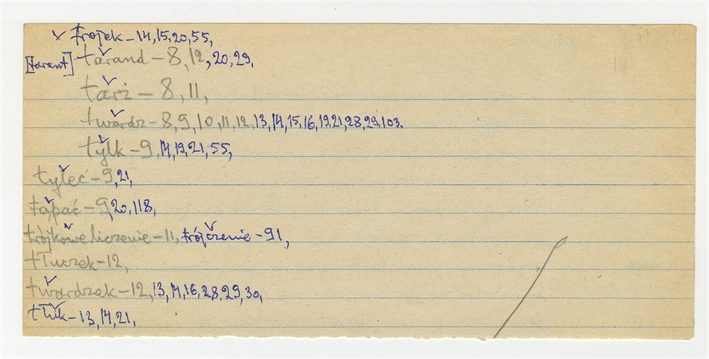 ✓ trojek – 14, 15, 20, 55,
[tarant] tarand – 8, 12, 20, 29,
tarż – 8, 11,
twardz – 8, 9, 10, 11, 12, 13, 14, 15, 16, 19, 21, 28, 29, 103.
tylk – 9, 14, 19, 21, 55,
tyleć – 9, 21,
tapać – 9, 20, 118,
trójkowe liczenie – 11, trójczenie – 91,
tłuczek – 12,
twardzak – 12, 13, 14, 16, 28, 29, 30,
tłuk – 13, 14, 21,